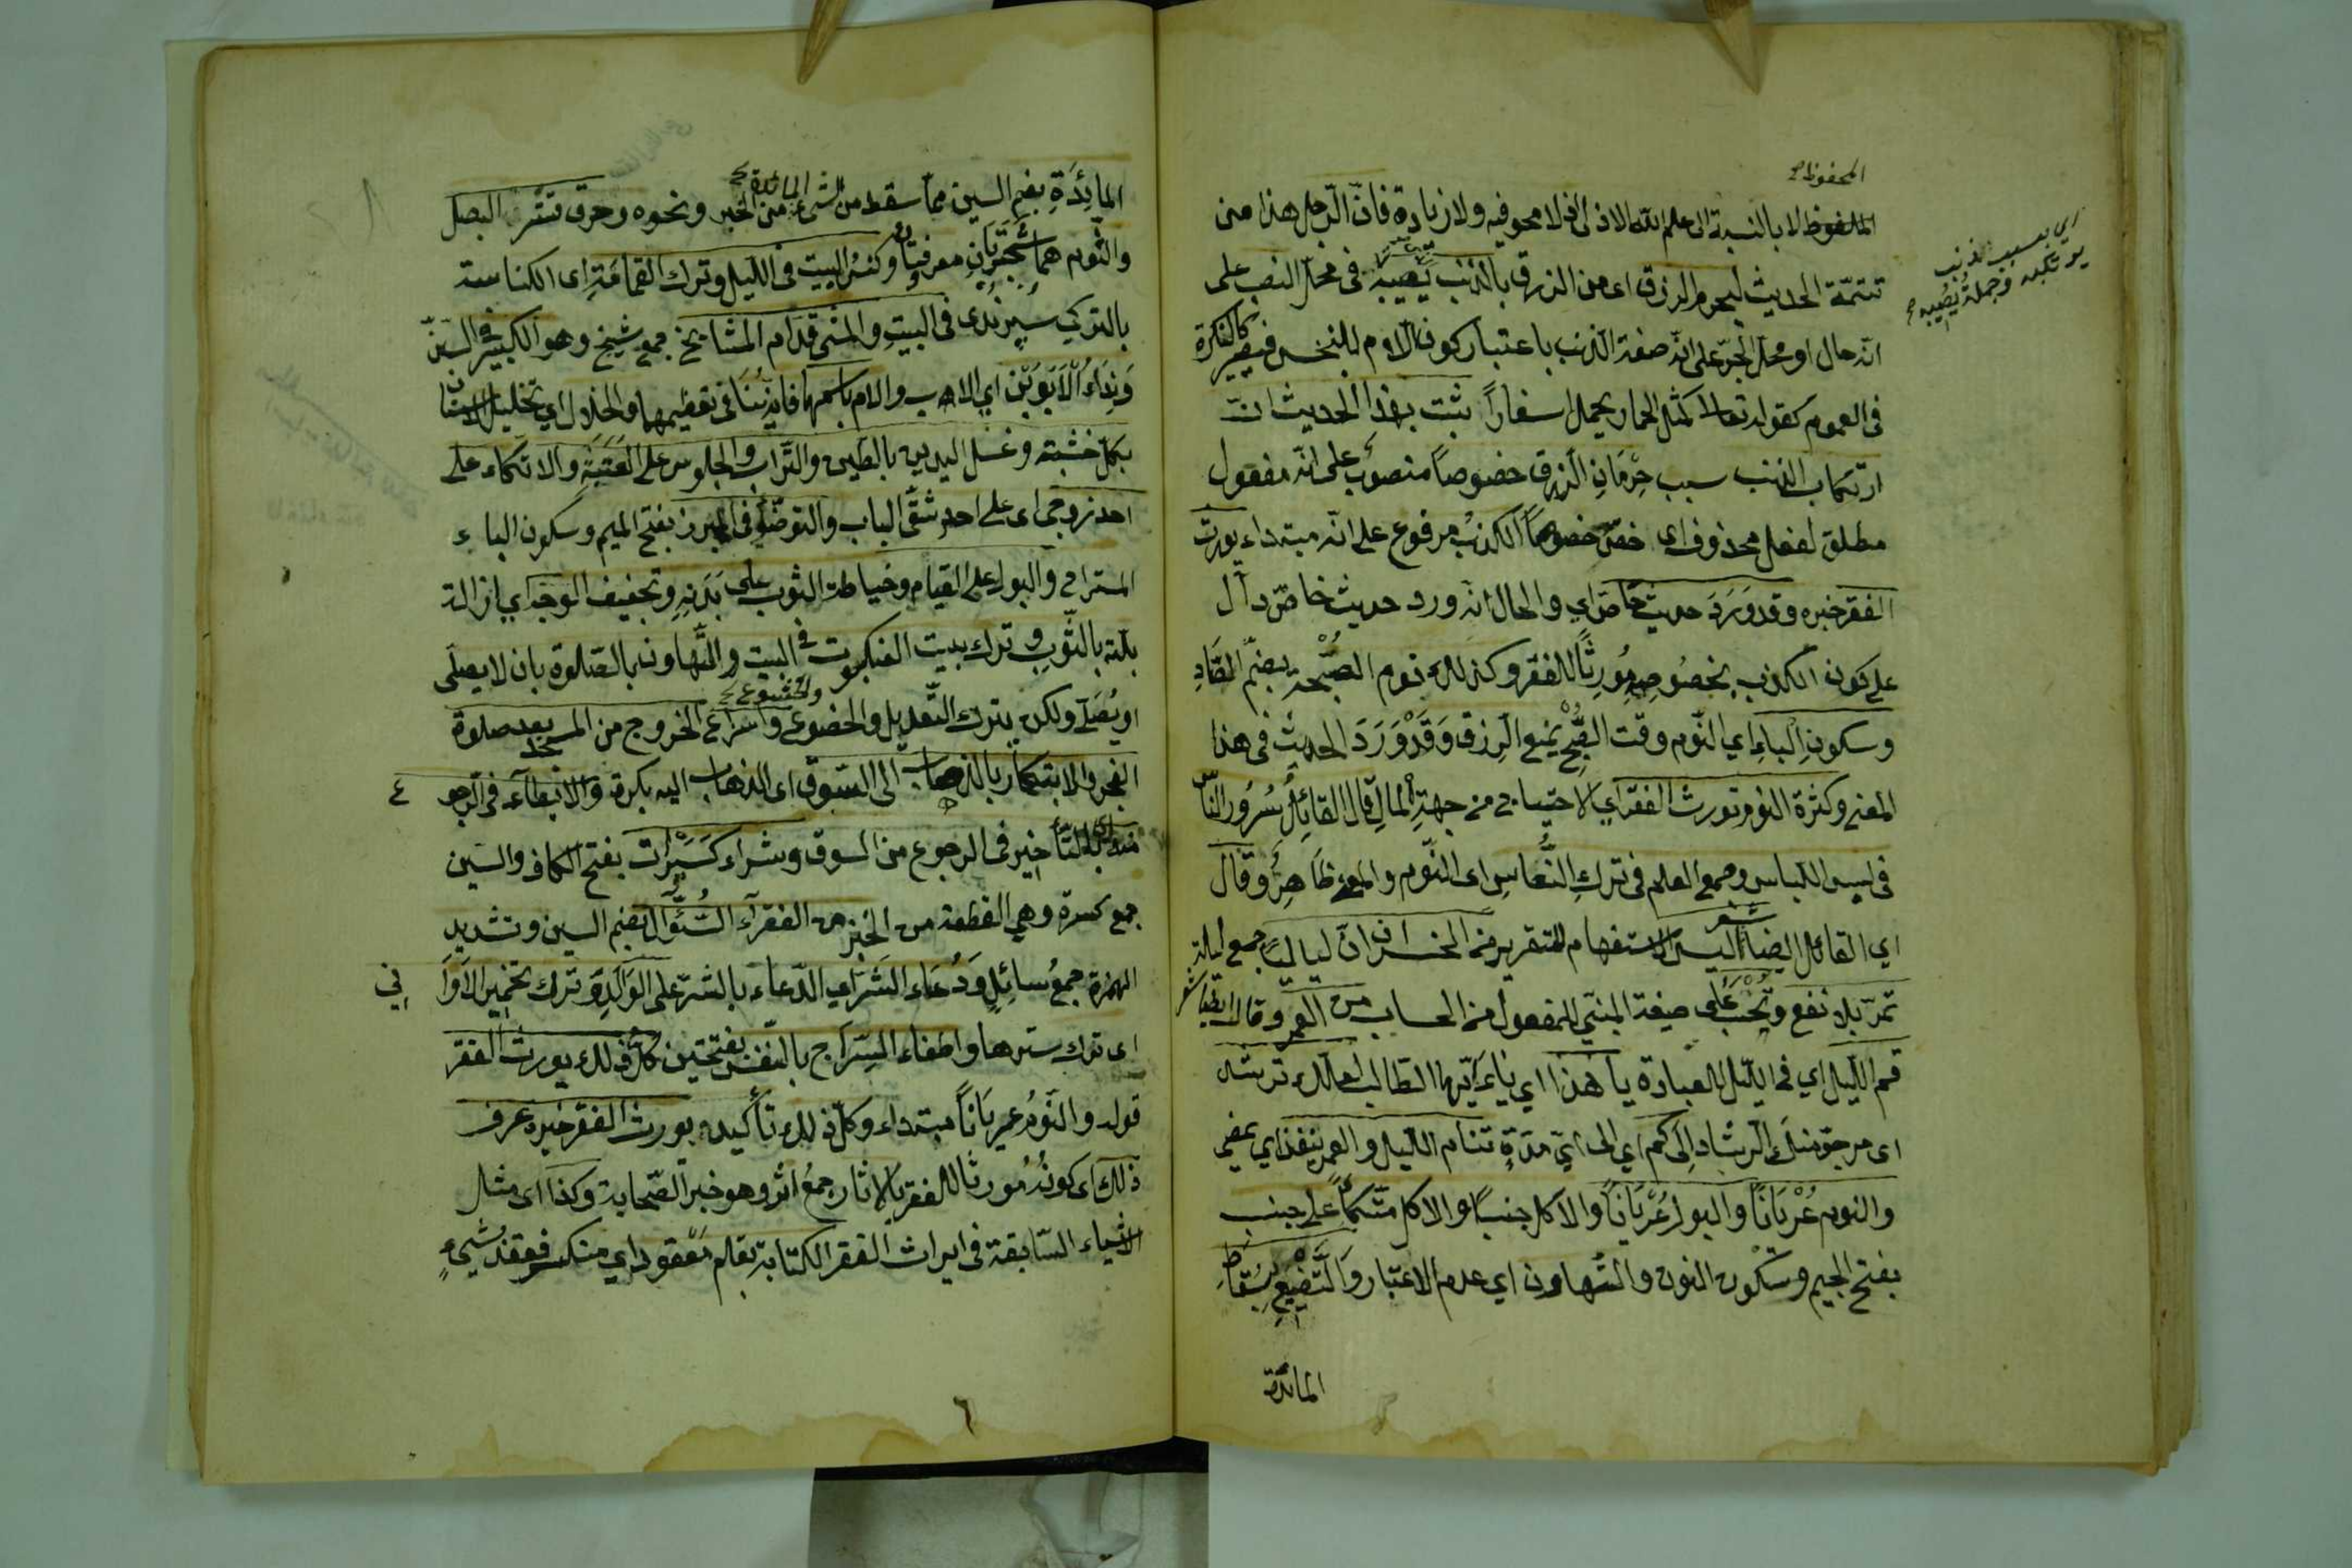 المحفوظ
الملفوظ لا بالنسبة الى علم الله الازلى الذى لا محو فيه ولا زيادة فانّ الرّجل هذا من
اي بسبب الذنب
يرتكبه وجملة يُصيبه
تتمّة الحديث ليحرم الرزق اى من الرزق بالذنب يُصيبه فى محلّ النصب على
انّه حال او محلّ الجرّ على انّه صفة الذنب باعتبار كون اللام للجنس فيصير كالنكرة
فى العموم كقوله تعالا كمثل الحمار يحمل اسفاراً ثبت بهذا الحديث انّ
ارتكاب الذنب سبب حِرْمَانِ الرّزق خصوصاً منصوب على انّه مفعول
مطلق لفعل محذوف اى خصّ خصوصاً الكذبُ مرفوع على انّه مبتداء يورث
الفقر خبره وقد وَرَدَ حديث خاصّ اي والحال انّه ورد حديث خاصّ دالّ
على كون الكذب بخصُوصِهِ مُورِثاً للفقر وكذلك نوم الصُّبْحة بضمّ الصّادِ
وسكونِ الباءِ اي النّوم وقت الصُّبْحِ يمنع الرزق وَقَدْ وَرَدَ الحديث فى هذا
المعنى وكثرة النوم تورث الفقر اي الاحتياج من جهةِ المالِ قال القائِلُ سُرُور النّاس
فى لبس اللباس وجمع العلم فى ترك النُّعَاسِ اى النّوم والمعنى ظاهِرٌ وقال
شعر
اي القائل ايضا أليس الاستفهام للتقرير من الخسران انّ ليالياً جمع ليلة
تمرّ بلا نفع وتُحْسَبُ على صيغة المبنيّ للمفعول من الحساب من العمر وقال ايضا شعر
قم اللّيل اي فى اللّيل للعبادة يا هذا اي يا ايّها الطّالب لعلّك ترشد
اى مرجوّ منك الرشاد اِلَى كم اي الى ايّ مدّةٍ تنام اللّيل والعمر ينفذ اي يمضى
والنوم عُرْيَانًا والبول عُرْيَاناً والاكل جنباً والاكل متّكأً على جنب
بفتح الجيم وسكون النون والتّهاون اي عدم الاعتبار والتّضيّع بسُقاطِ
المائدة
المائِدَةِ بضم السين ممّا سقط من الشىء من الخبز ونحوه وحرق قشر البصل
المائدة
والثّوم هما شجرتان معرفتان وكنسُ البيت فى اللّيل وترك القمامَةِ اى الكناسة
بالتركي سپرندى فى البيتِ والمشى قدّام المشايخ جمع شيخ وهو الكبير فى السّنّ
وَنِدَاءُ الْاَبَوَيْنِ اي الاب والام باسمهما فانه ينافى تعظيمهما والخلال اي تخليل الاسنان
بكلّ خشبة وغسل اليدين بالطّين والتّراب والجلوس على العَتَبَةِ والاتكاء على
احد زوجي اى على احد شقّى الباب والتوضّؤ فى المبرز بفتح الميم وسكون الباء
المستراح والبول على القيام وخياطة الثوب على بَدَنِهِ وتجفيف الوجه اي ازالة
بلّته بالثّوب وترك بيت العنكبوت فى البيت والتّهاون بالصّلوة بان لا يصلّى
او يُصَلّى ولكن بترك التّعديل والخضوع واسراع الخروج من المسجد بعد صلاة
والخشوع
الفجر والابتكار بالذهاب الى السّوق اى الذهاب اليه بكرة والابطآء فى الرجوع
منه اى التّأخير فى الرجوع من السوق وشراء كسيرات بفتح الكاف والسين
جمع كسرة وهي القطعة من الخبز من الفقرآء السُّؤّال بضم السين وتشديد
الهمزة جمعُ سائِلٍ وَدُعَاء الشَّرِّ اي الدّعاء بالشّرّ على الوَالِدِ وترك تخمير الاَوانِي
اى ترك سترها واطفاء السِّرَاج بالنّفس بفتحتين كلّ ذلك يورث الفقر
قوله والنّومُ عريَاناً مبتداء وكلّ ذلك تأكيده ويورث الفقر خبره عرف
ذلك اى كونُهُ مُورثًا للفقر بالاثار جمعُ اثر وهو خبر الصّحابة وكذا اى مثل
الاشياء السّابقة فى ايراث الفقر الكتابة بقلم مَعْقود اي منكسر فعقد بشيءٍ